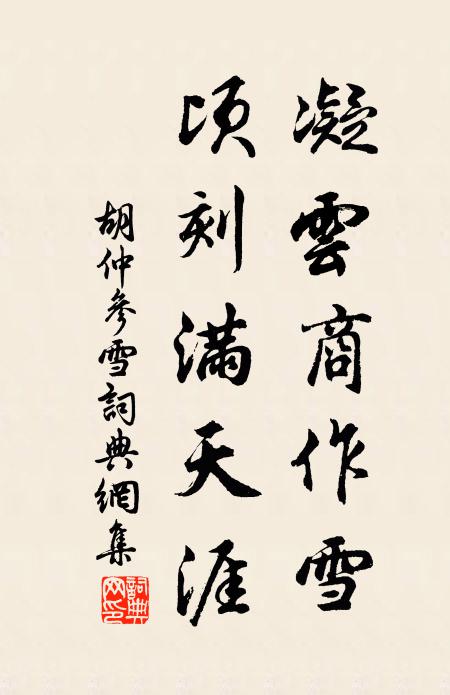 凝雲商作雪
頃刻滿天涯
胡仲參雪詞典網集
詞典網印